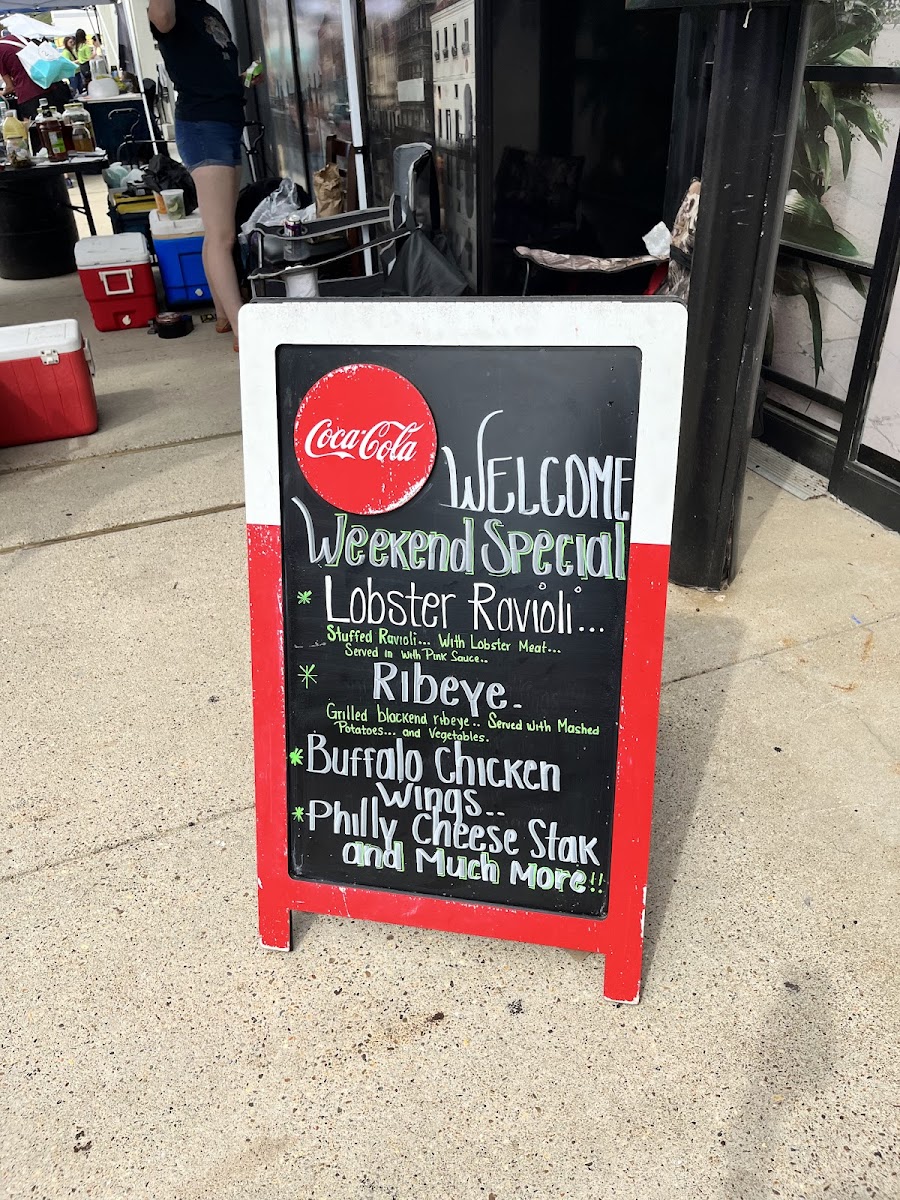 Coca-Cola
WELCOME
Weekend Special
* Lobster Ravioli...
Stuffed Ravioli... With Lobster Meat...
Served in with Pink Sauce..
* Ribeye.
Grilled blackend ribeye.. Served with Mashed
Potatoes... and Vegetables.
* Buffalo Chicken
Wings..
* Philly Cheese Stak
and Much More!!